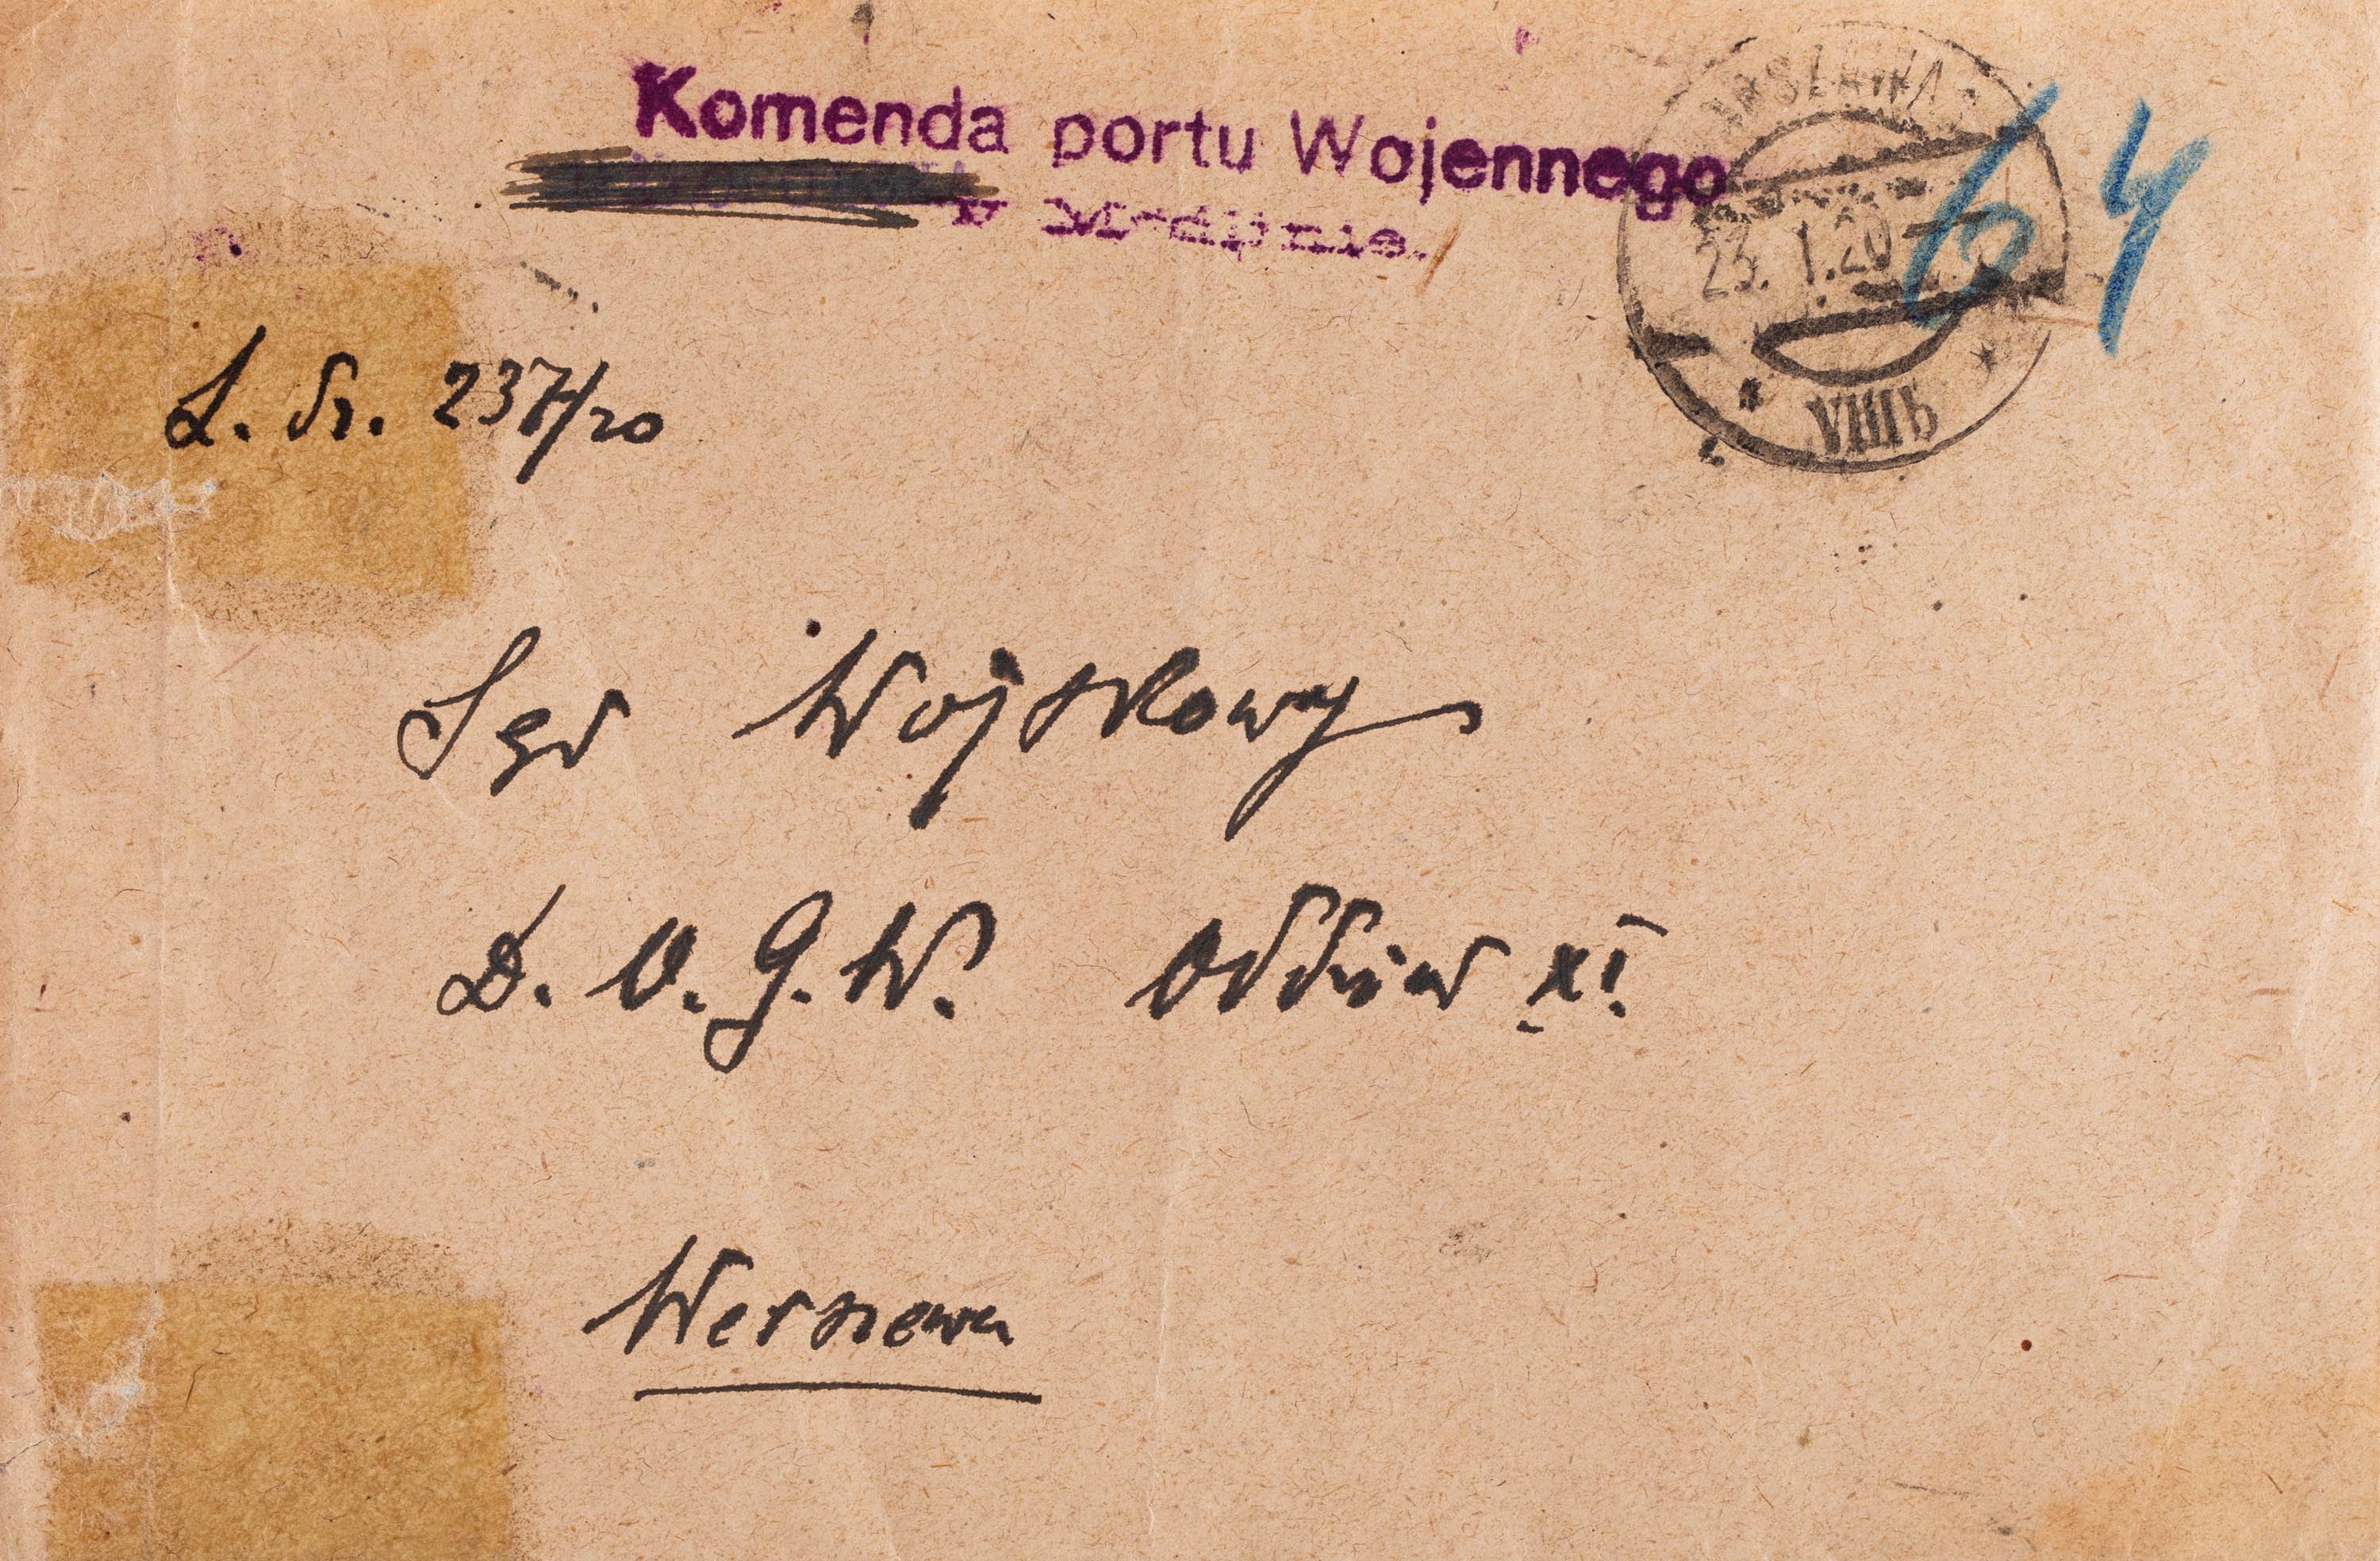 Komenda portu Wojennego
w Modlinie.
WARSZAWA
23. 1.20
VIII b
64
L. dz. 237/20
Sąd Wojskowy
D. O. G. W. Oddział XI.
Warszawa